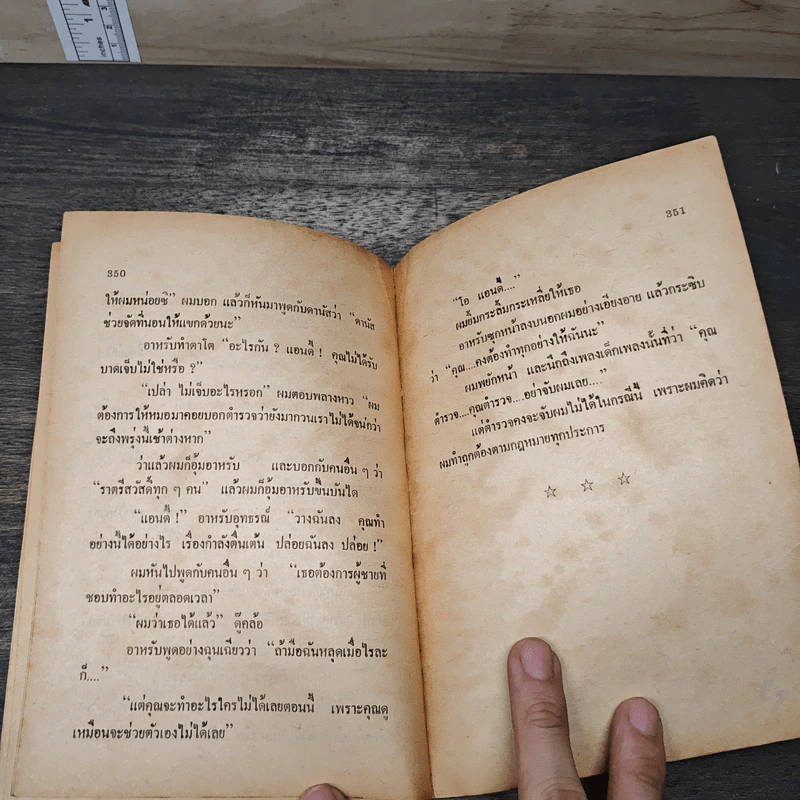 inches
1
2
3
350
ให้ผมหน่อยซิ” ผมบอก แล้วก็หันมาพูดกับดานัสว่า “ดานัส
ช่วยจัดที่นอนให้แขกด้วยนะ”
อาหรับทำตาโต “อะไรกัน ? แอนดี้ ! คุณไม่ได้รับ
บาดเจ็บไม่ใช่หรือ ?”
“เปล่า ไม่เจ็บอะไรหรอก” ผมตอบพลางหาว “ผม
ต้องการให้หมอมาคอยบอกตำรวจว่ายังมากวนเราไม่ได้จนกว่า
จะถึงพรุ่งนี้เช้าต่างหาก”
ว่าแล้วผมก็อุ้มอาหรับ และบอกกับคนอื่น ๆ ว่า
“ราตรีสวัสดิ์ทุก ๆ คน” แล้วผมก็อุ้มอาหรับขึ้นบันได
“แอนดี้ !” อาหรับอุทธรณ์ “วางฉันลง คุณทำ
อย่างนี้ได้อย่างไร เรื่องกำลังตื่นเต้น ปล่อยฉันลง ปล่อย !”
ผมหันไปพูดกับคนอื่น ๆ ว่า “เธอต้องการผู้ชายที่
ชอบทำอะไรอยู่ตลอดเวลา”
“ผมว่าเธอได้แล้ว” ดุ๊คล้อ
อาหรับพูดอย่างฉุนเฉียวว่า “ถ้ามือฉันหลุดเมื่อไรละ
ก็....”
“แต่คุณจะทำอะไรใครไม่ได้เลยตอนนี้ เพราะคุณดู
เหมือนจะช่วยตัวเองไม่ได้เลย”
351
“โอ แอนดี้....”
ผมยิ้มกระลิ้มกระเหลี่ยให้เธอ
อาหรับซุกหน้าลงบนอกผมอย่างเอียงอาย แล้วกระซิบ
ว่า “คุณ....คงต้องทำทุกอย่างให้ฉันนะ”
ผมพยักหน้า และนึกถึงเพลงเด็กเพลงนั้นที่ว่า “คุณ
ตำรวจ....คุณตำรวจ....อย่าจับผมเลย....”
แต่ตำรวจคงจะจับผมไม่ได้ในกรณีนี้ เพราะผมคิดว่า
ผมทำถูกต้องตามกฎหมายทุกประการ
☆ ☆ ☆